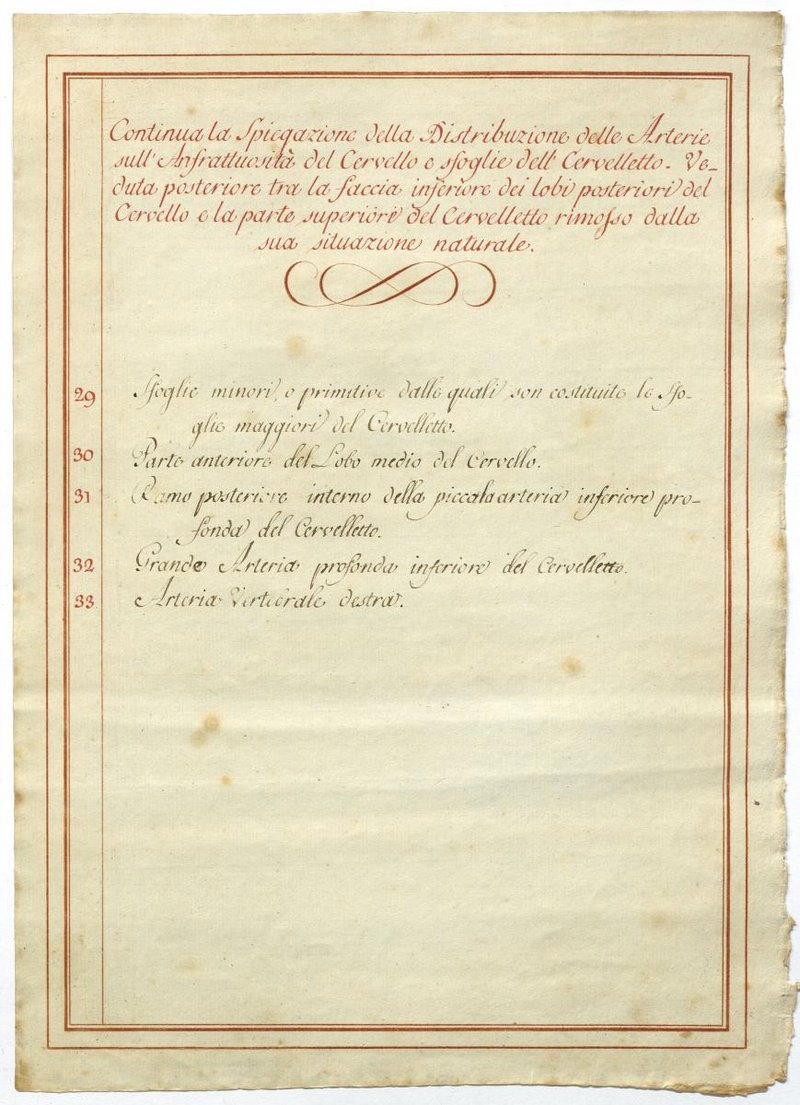 Continua la Spiegazione della Distribuzione delle Arterie
sull'Anfrattuosità del Cervello e sfoglie dell'Cervelletto. Ve-
duta posteriore tra la faccia inferiore dei lobi posteriori del
Cervello e la parte superiore del Cervelletto rimosso dalla
sua situazione naturale.
29 Sfoglie minori, o primitive dalle quali son costituite le Sfo-
glie maggiori del Cervelletto.
30 Parte anteriore del Lobo medio del Cervello.
31 Ramo posteriore interno della piccola arteria inferiore pro-
fonda del Cervelletto.
32 Grande Arteria profonda inferiore del Cervelletto.
33 Arteria Vertebrale destra.